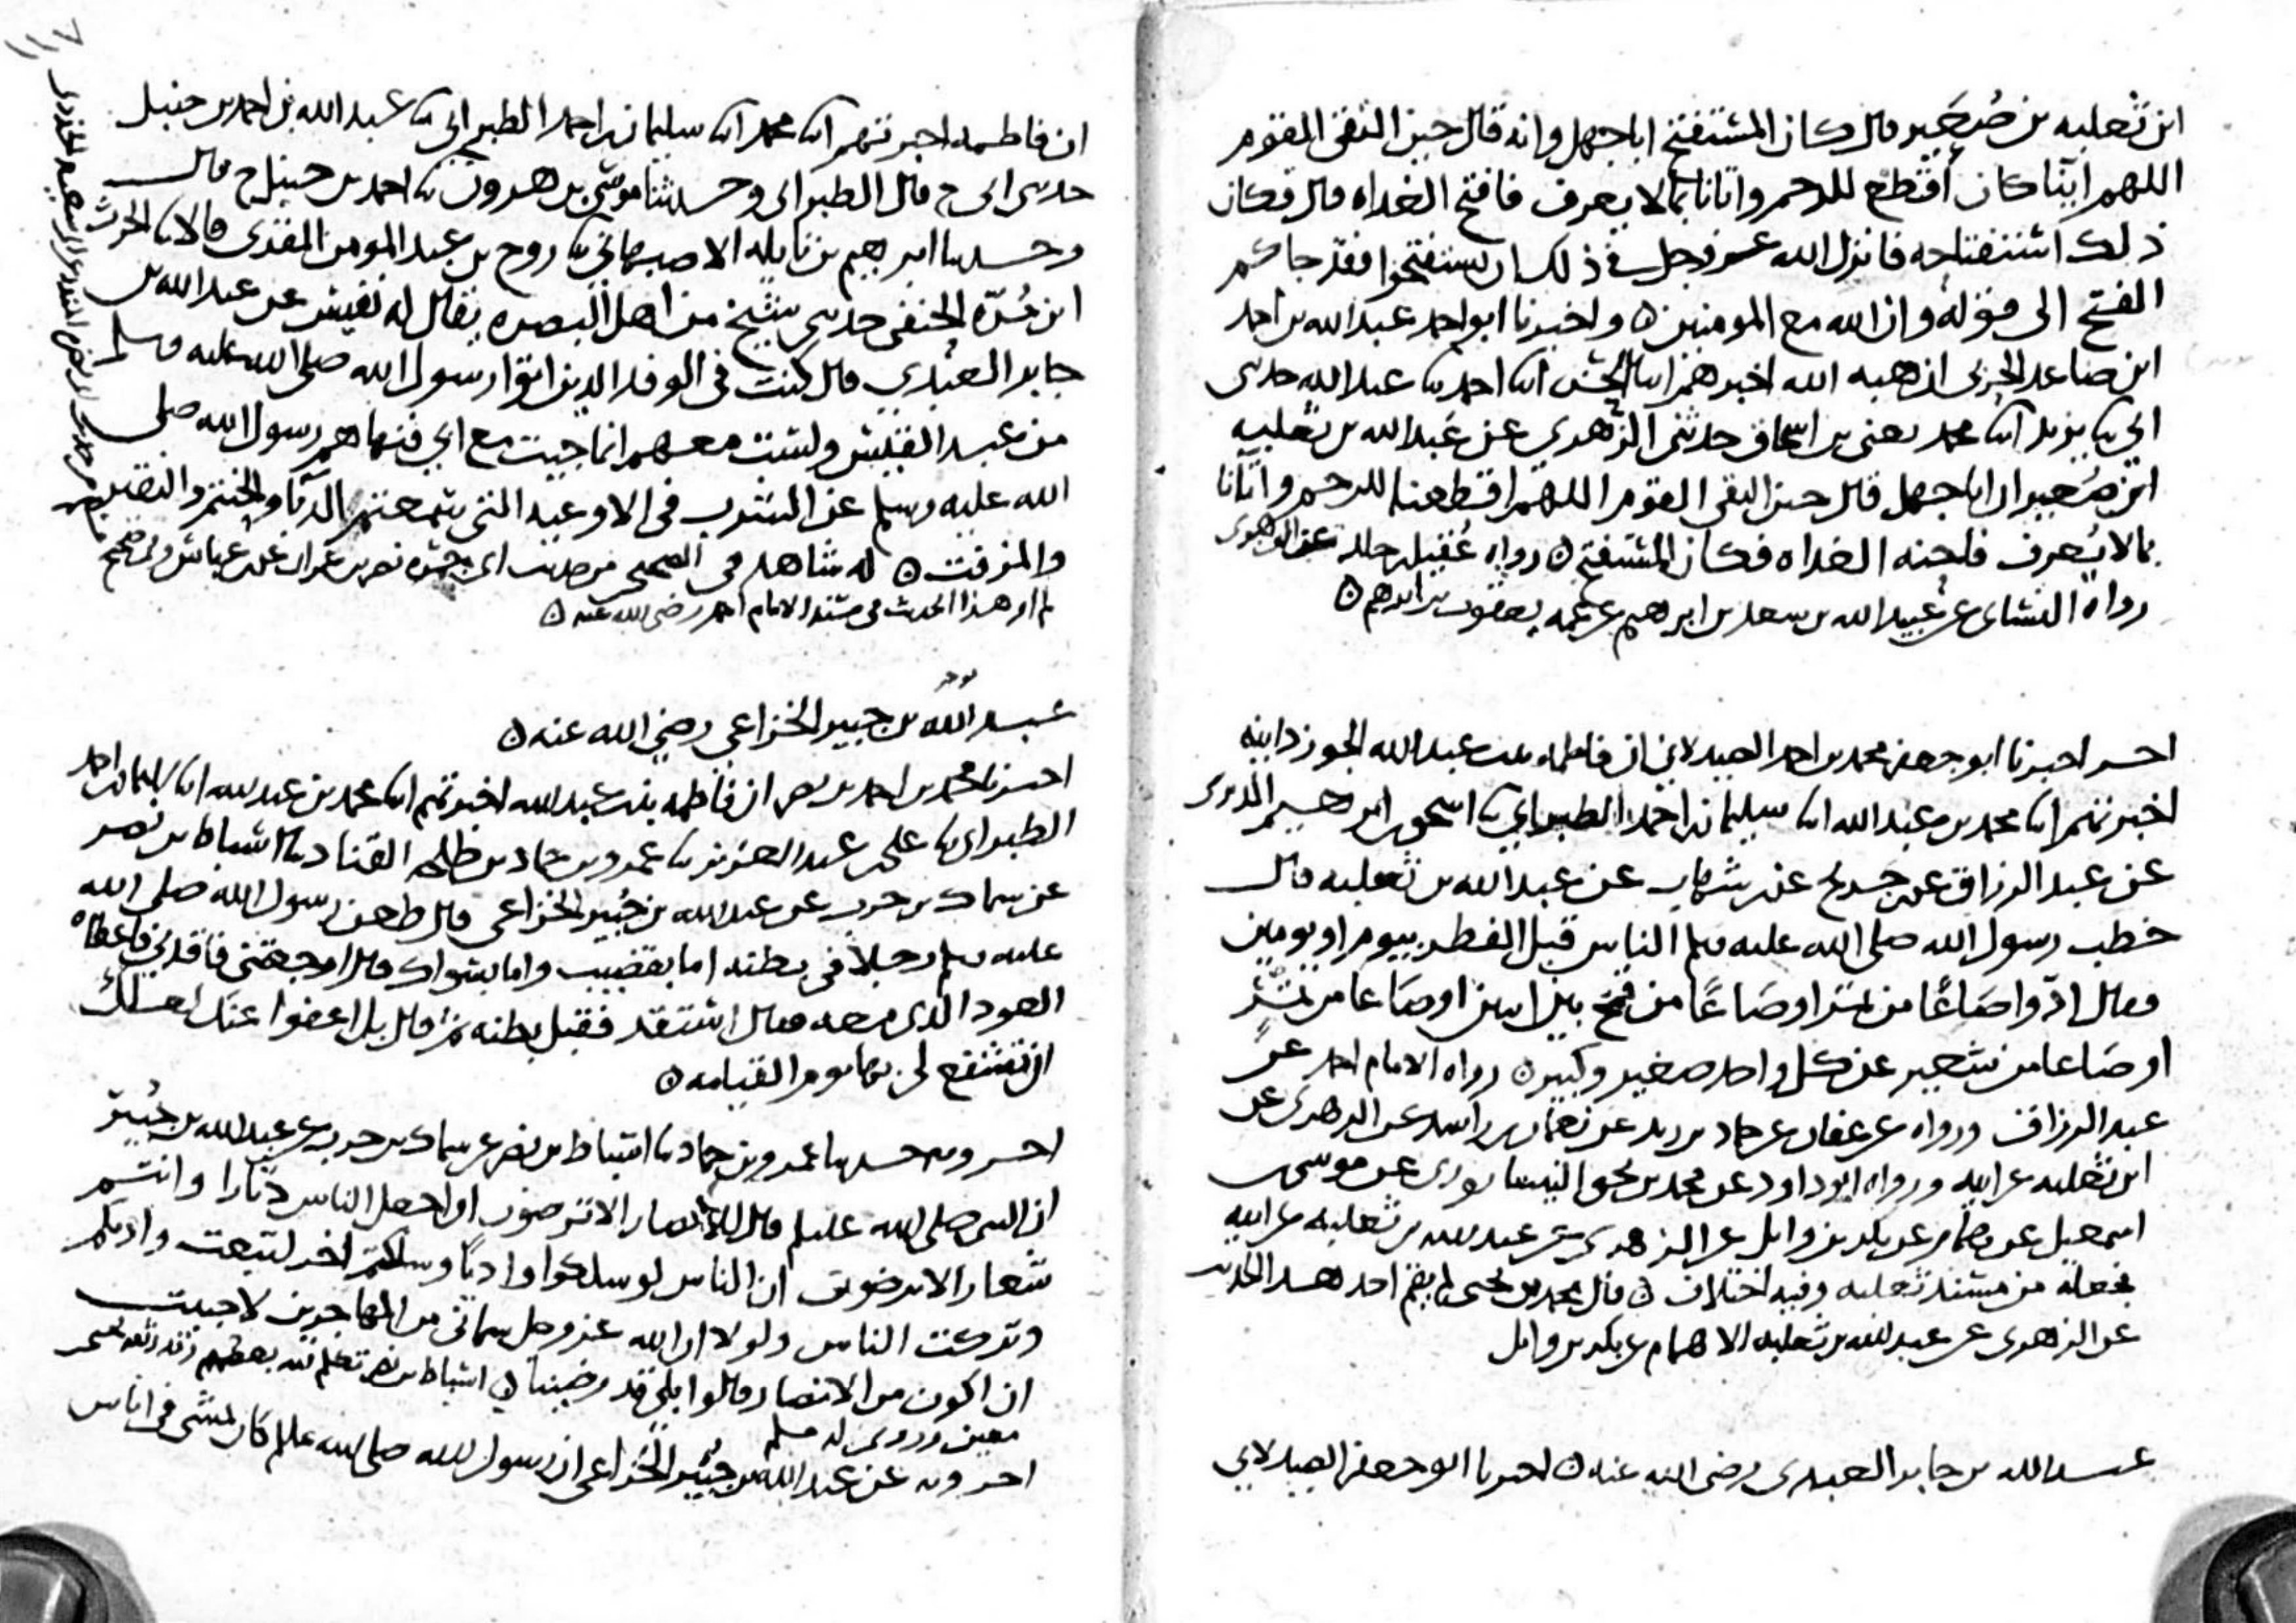 ابن ثعلبه بن صُعَير قال كان المستفتح اباجهل وانه قال حين التقى القوم
اللهم ايّنا كان أقطع للرحم واتانا بما لا يعرف فافتح الغداه قال فكان
ذلك استفتاحه فانزل الله عز وجل في ذلك ان تستفتحوا فقد جاكم
الفتح الى قوله وان الله مع المومنين ٥ واخبرنا ابو احمد عبد الله بن احمد
ابن صاعد الحربى ان هبه الله اخبرهم ابنا الحسن ابنا احمد ثنا عبد الله حدثى
ابي ثنا يزيد ابنا محمد يعنى بن اسحاق حدثنى الزهري عن عبد الله بن ثعلبه
ابن صُعير ان اباجهل قال حين التقى القوم اللهم اقطعنا للرحم واتانا
بما لا يُعرف فاحنه الغداه فكان المستفتح ٥ رواه عُقيل بن خلد عن الزهرى
رواه النسائى عن عُبيد الله بن سعد بن ابرهيم عن عمه يعقوب بن ابرهم ٥
اخبرنا ابو جعفر محمد بن احمد الصيدلاني ان فاطمه بنت عبد الله الجوزدانيه
اخبرتهم ابنا محمد بن عبد الله ابنا سليمان بن احمد الطبراني ثنا اسحق بن ابرهيم الدبرى
عن عبد الرزاق عن بن جريج عن بن شهاب عن عبد الله بن ثعلبه قال
خطب رسول الله صلى الله عليه وسلم الناس قبل الفطر بيوم او يومين
فقال ادّوا صَاعًا من بُرّ او صَاعًا من قمح بين اثنين او صَاعا من تمرٍ
او صَاعا من شعير عن كل واحد صغير وكبير ٥ رواه الامام احمد عن
عبد الرزاق ورواه عن عفان عن حماد بن زيد عن نعمان بن راشد عن الزهرى عن
ابن ثعلبه عن ابيه ورواه ابو داود عن محمد بن يحيى النيسابورى عن موسى بن
اسمعيل عن همام عن بكر بن وايل عن الزهرى عن عبد الله بن ثعلبه عن ابيه
فجعله من مسند ثعلبه وفيه اختلاف ٥ قال محمد بن يحيى لم يقم احد هذا الحديث
عن الزهرى عن عبد الله بن ثعلبه الا همام عن بكر بن وايل
عبد الله بن جابر العبدى رضى الله عنه ٥ اخبرنا ابو جعفر الصيدلاني
ان فاطمه اخبرتهم ابنا محمد ابنا سليمان بن احمد الطبراني ثنا عبد الله بن احمد بن حنبل
حدثى ابى ح قال الطبرانى وحدثنا موسى بن هرون ثنا احمد بن حنبل ح قال
وحدثنا ابرهيم بن نايله الاصبهاني ثنا روح بن عبد المومن المقرى قالا ثنا الحرث
ابن مُرّه الحنفى حدثنى شيخ من اهل البصره يقال له نفيس عن عبد الله بن
جابر العبدي قال كنت فى الوفد الدين اتوا رسول الله صلى الله عليه وسلم
من عبد القيس ولست معهم انما جيت مع ابي فنهاهم رسول الله صلى
الله عليه وسلم عن الشرب فى الاوعيه التى سمعتم الدبّا والحنتم والنقير
والمزفت ٥ له شاهد فى الصحيح من حديث ابى جمره نصر بن عمران عن بن عباس وفى صحيح
لم ار هذا الحديث فى مسند الامام احمد رضى الله عنه ٥
عبد الله بن جبير الخزاعى رضي الله عنه ٥
اخبرنا محمد بن احمد بن نصر ان فاطمه بنت عبد الله اخبرتهم ابنا محمد بن عبد الله ابنا سليمان بن احمد
الطبرانى ثنا على بن عبد العزيز ثنا عمرو بن حماد بن طلحه القناد ثنا اسباط بن نصر
عن سماك بن حرب عن عبد الله بن جُبير الخزاعى قال طعن رسول الله صلى الله
عليه وسلم رجلاً فى بطنه اما بقضيب واما بسواك فقال اوجعتنى فاقدني فاعطاه
العود الذى معه فقال استقد فقبل بطنه ثم قال بل اعفوا عنك لعلك
ان تشفع لى بها يوم القيامه ٥
اخبر وبه حدثنا عمرو بن حماد ثنا اسباط بن نصر عن سماك بن حرب عن عبد الله بن جُبير
ان النبى صلى الله عليه وسلم قال للانصار الا ترضون ان اجعل الناس دثارا وانتم
شعار الا ترضون ان الناس لو سلكوا واديًا وسلكتم اخر لتبعت واديكم
وتركت الناس ولولا ان الله عز وجل سمانى من المهاجرين لاحببت
ان اكون من الانصار قالوا بلى قد رضينا ٥ اسباط بن نصر تكلم فيه بعضهم وقد وثقه يحيى بن
معين وروى له مسلم
اخبر وبه عن عبد الله بن جُبير الخزاعى ان رسول الله صلى الله عليه وسلم كان يمشى فى اناس